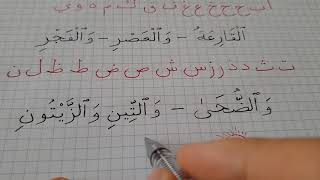 ا ب ج ح خ ع غ ف ق ك م ه و ي
ٱلْقَارِعَةُ - وَٱلْعَصْرِ - وَٱلْفَجْرِ
ت ث د ذ ر ز س ش ص ض ط ظ ل ن
وَٱلضُّحَىٰ - وَٱلتِّينِ وَٱلزَّيْتُونِ